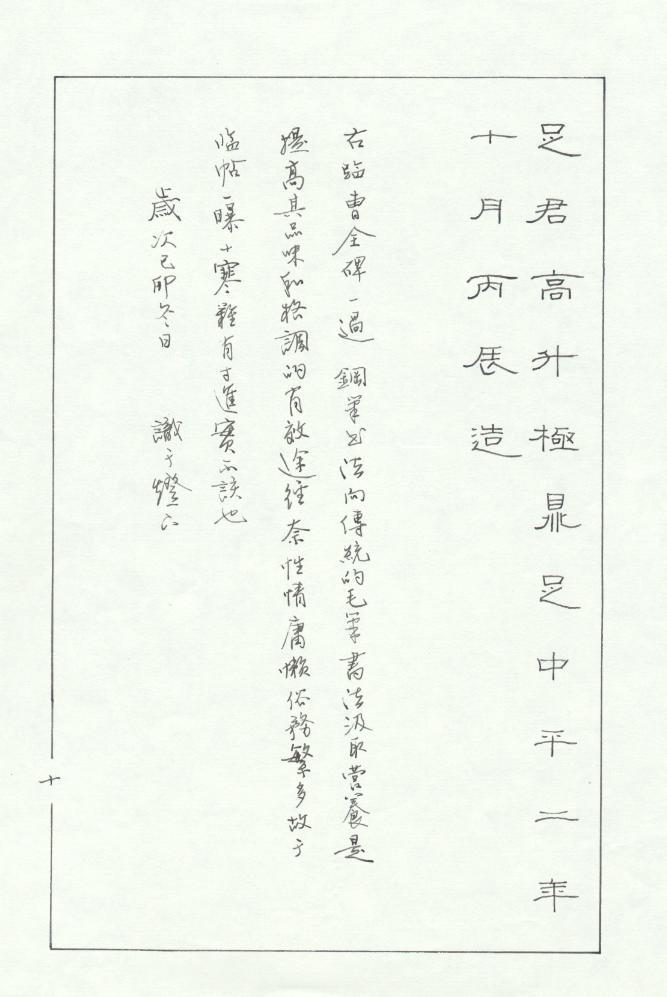 足君高升極鼎足中平二年
十月丙辰造
右臨曹全碑一過 鋼筆書法向傳統的毛筆書法汲取營養是
提高其品味和格調的有效途徑奈性情庸懶俗務繁多故于
臨帖一曝十寒難有寸進實不該也
歲次己卯冬日 識于燈下
十